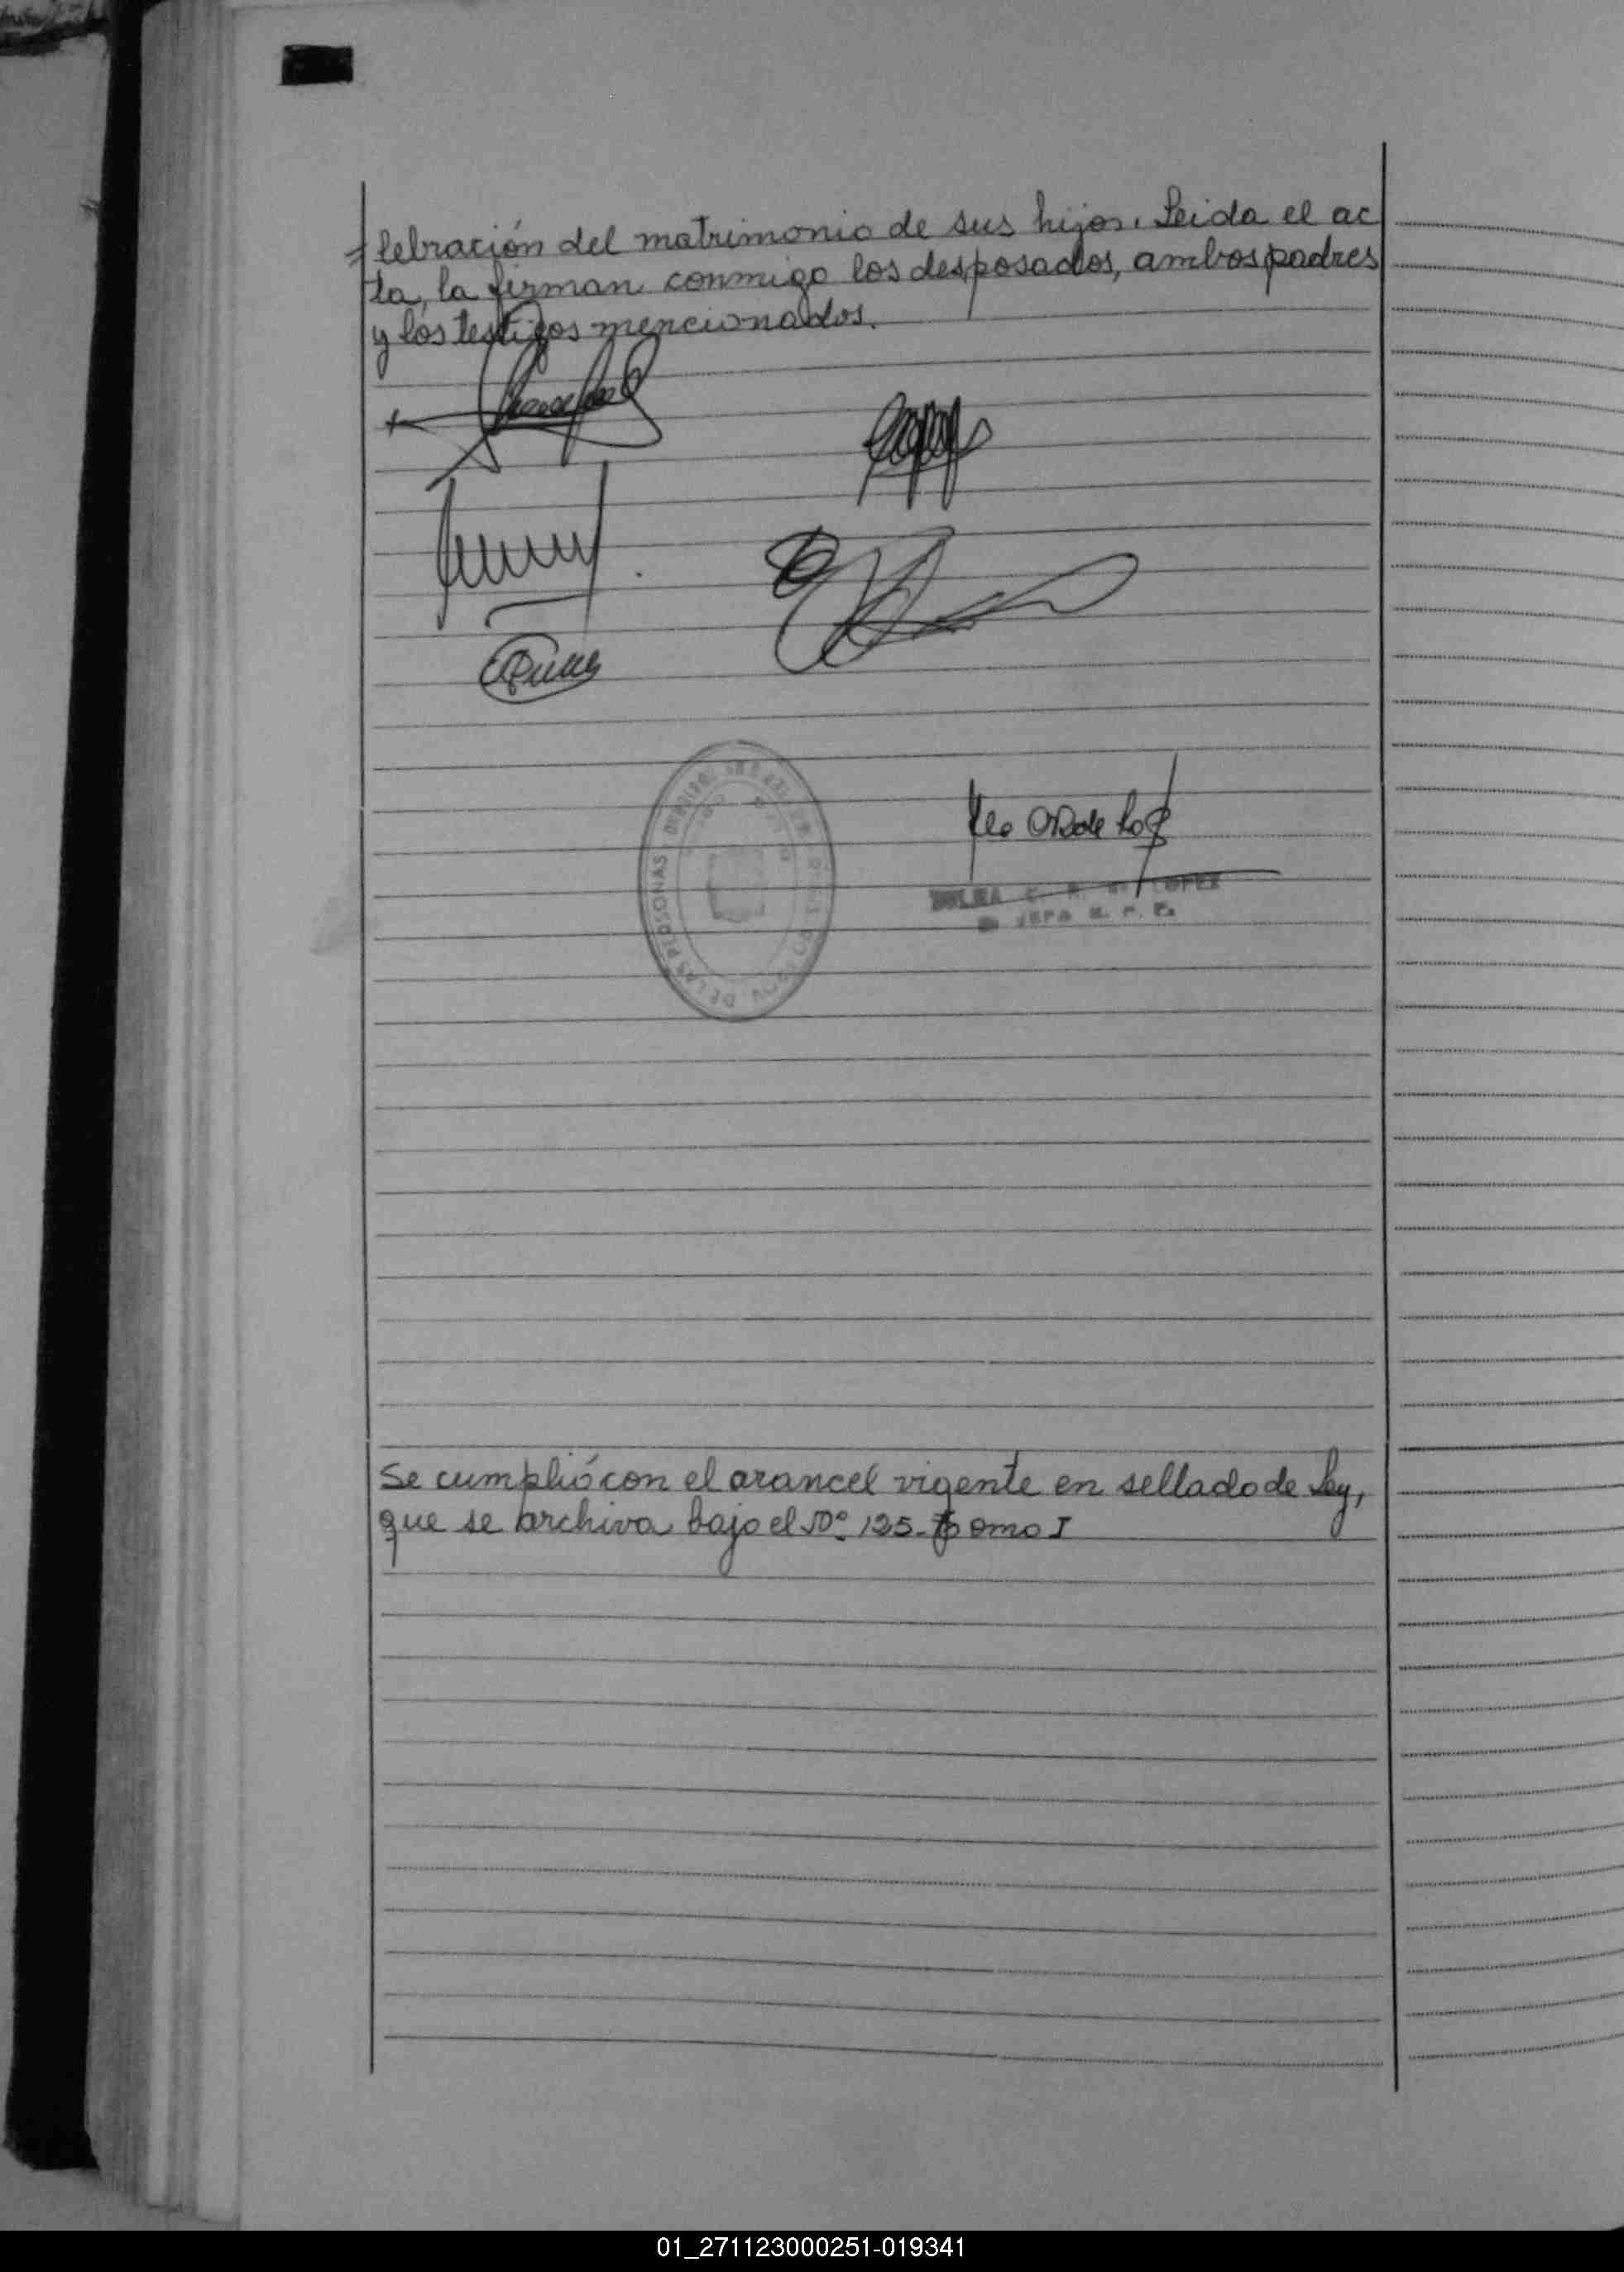 =lebración del matrimonio de sus hijos. Leida el ac
ta, la firman conmigo los desposados, ambos padres
y los testigos mencionados.
DE LAS PERSONAS
LOPEZ
JEFA R. P.
Se cumplió con el arancel vigente en sellado de Ley,
que se archiva bajo el Nº 125-Tomo I
01_271123000251-019341